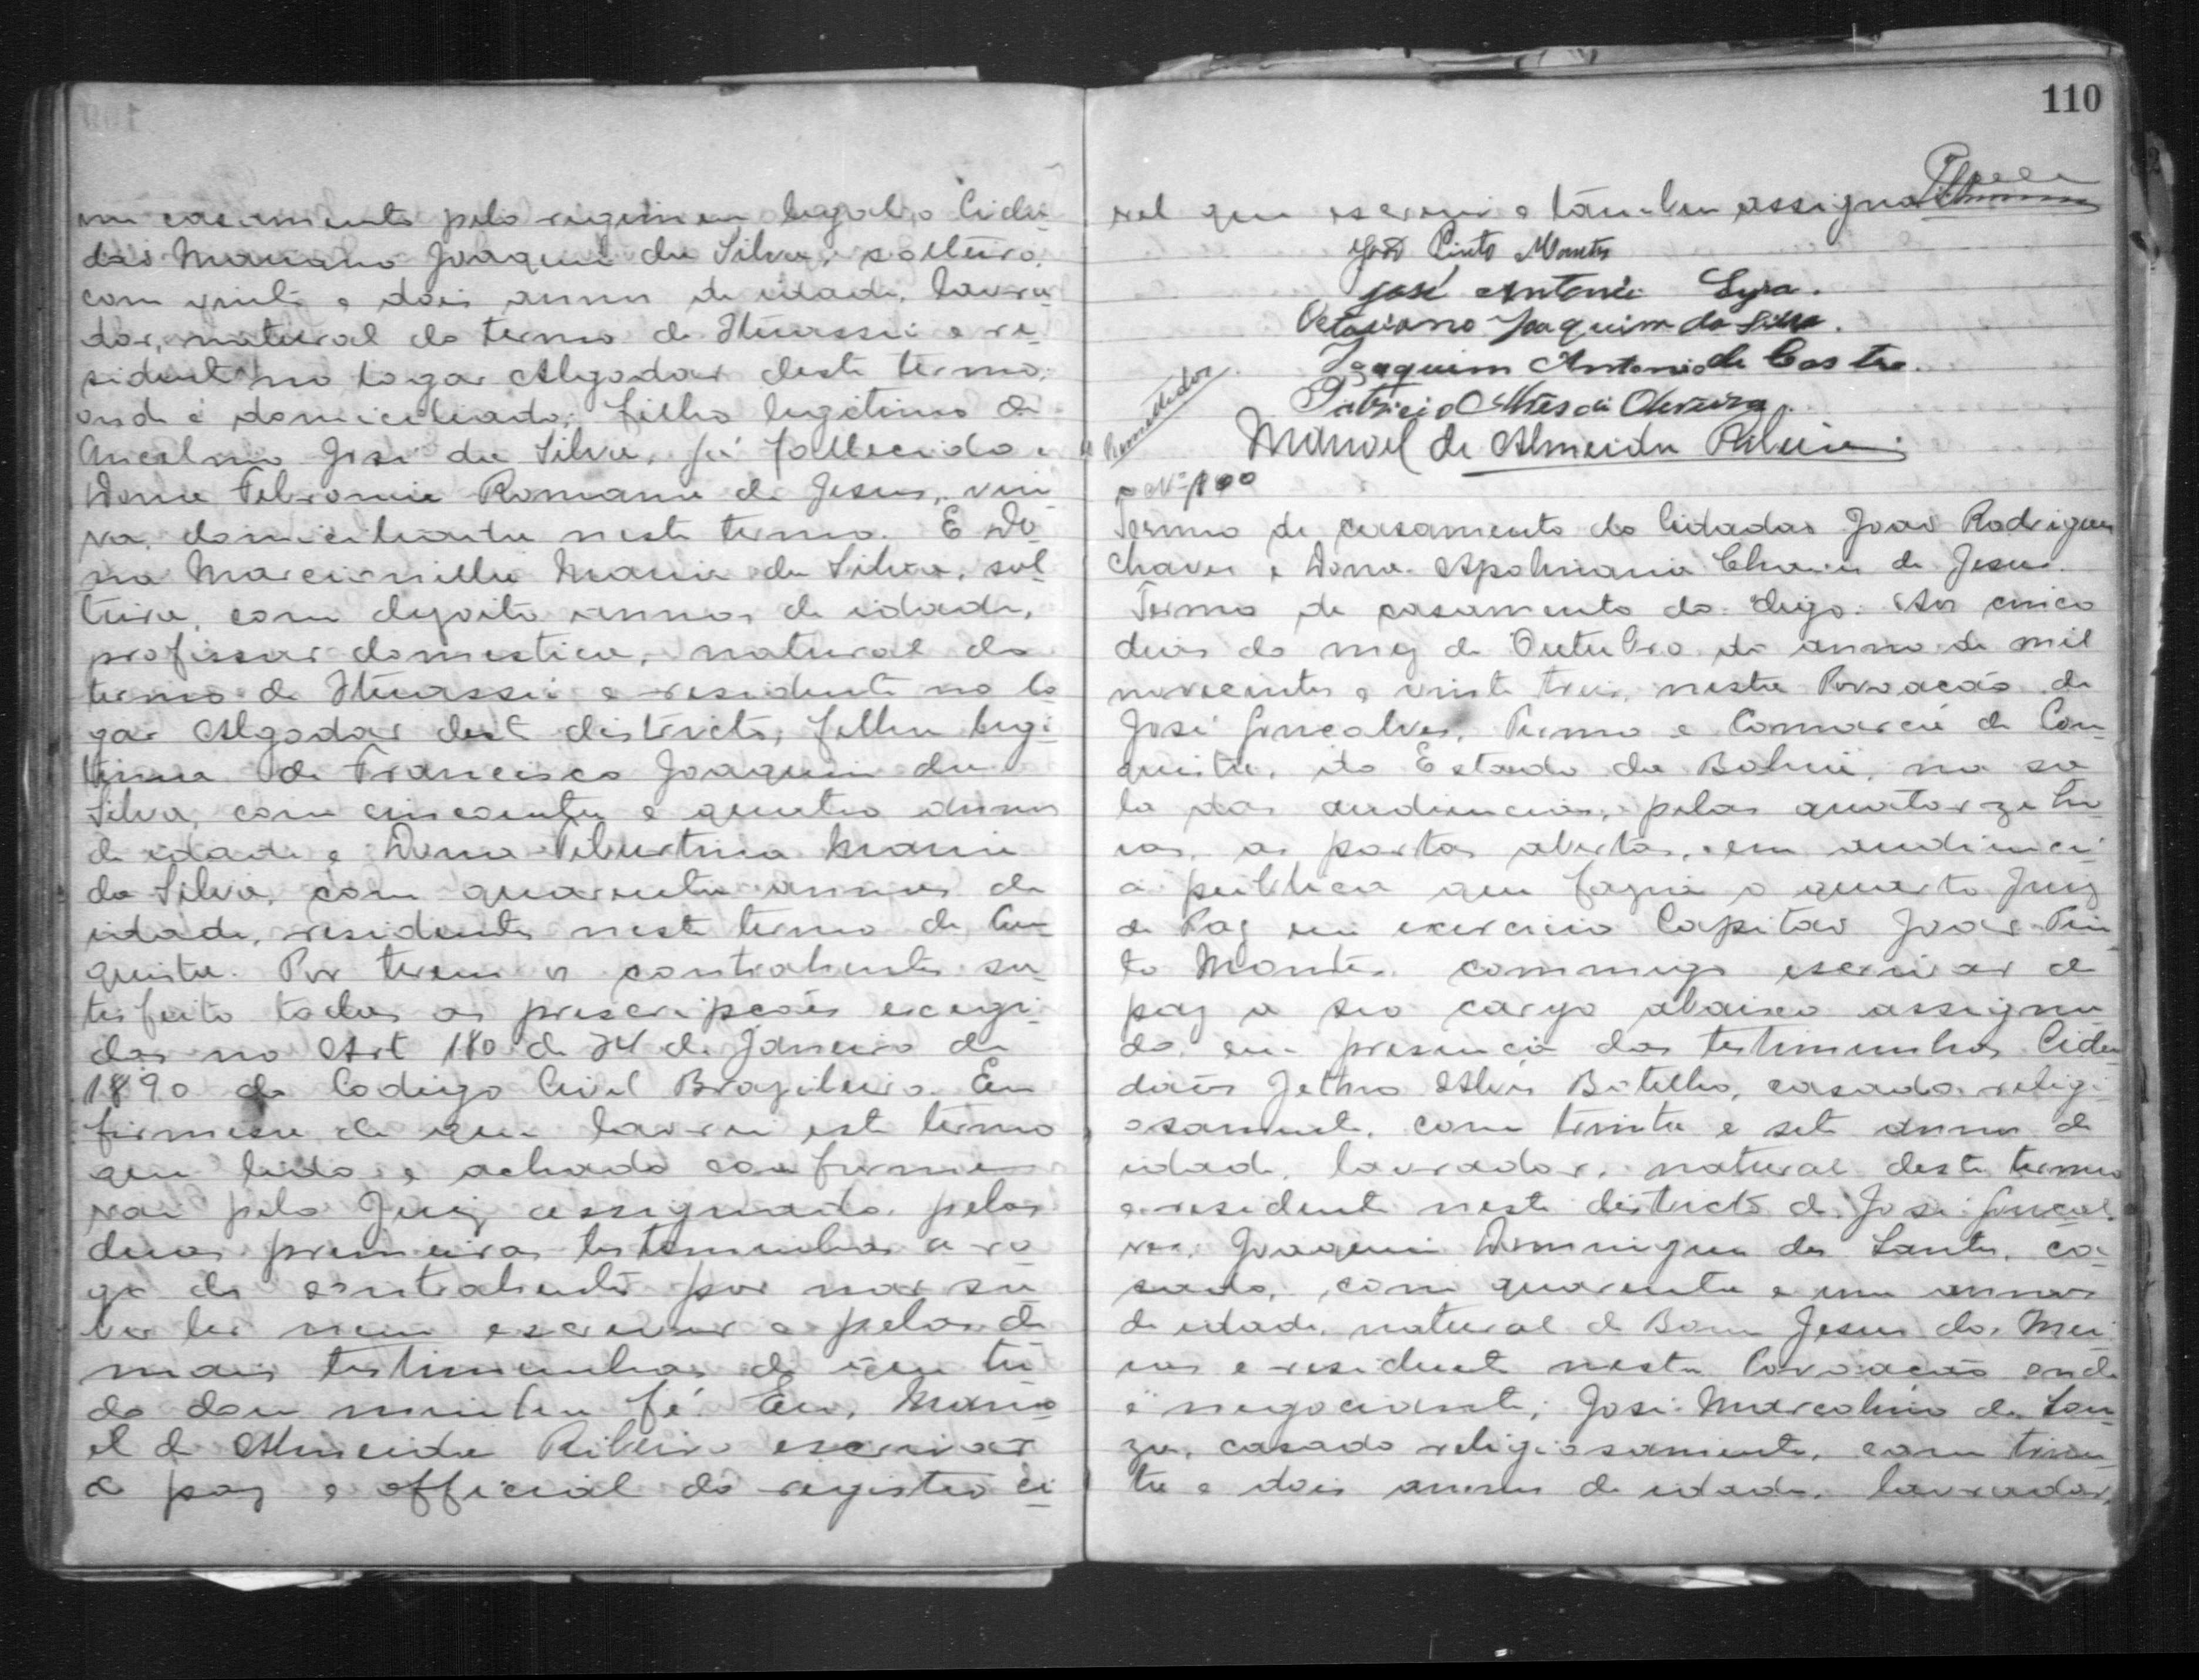 em casamento pelo regimen legal, o Cida-
dão Mariano Joaquim da Silva, solteiro,
com vinte e dois annos de idade, lavra-
dor, natural do termo de Ituassú e re-
sidente no logar Algodão deste termo,
onde é domiciliado; filho legitimo de
Ancelmo José da Silva, já fallecido e
Dona Febronia Romana de Jesus, viu-
va, domiciliada neste termo. E Do-
na Marcionilla Maria da Silva, sol-
teira, com dezoito annos de idade,
profissão domestica, natural do
termo de Ituassú e residente no lo-
gar Algodão deste districto, filha legi-
tima de Francisco Joaquim da
Silva, com cincoenta e quatro annos
de idade e Dona Tiburtina Maria
da Silva, com quarenta annos de
idade, residentes neste termo de Con-
quista. Por terem os contrahentes sa-
tisfeito todas as prescripções exegi-
das no Art 180 de 24 de Janeiro de
1890 do Codigo Civel Brazileiro. Em
firmesa de que lavrei este termo
que lido e achado conforme
vai pelo Juiz assignado, pelas
duas primeiras testemunhas a ro-
go dos contrahentes por não sa-
ber ler nem escrever e pelas de
mais testimunhas do que tu-
do dou minha fé. Eu, Mano-
el de Almeida Ribeiro escrivão
de paz e official do registro ci-
110
vel que escrevi e tambem assigno
João Pinto Montes
José Antonio Lyra.
Octaviano Joaquim da Silva.
Joaquim Antonio de Castro.
Patricio Alves de Oliveira.
Manoel de Almeida Ribeiro
Remettido
Nº 100
Termo de casamento do Cidadão João Rodrigues
Chaves e Dona Apolinaria Chaves de Jesus.
Termo de casamento do digo. Aos cinco
dias do mez de Outubro do anno de mil
novecentos e vinte tres, nesta Povoação de
José Gonçalves, Termo e Comarca de Con-
quista, do Estado da Bahia, na sa-
la das audiencias, pelas quatorze ho-
ras, as portas abertas, em audienci-
a publica que fazia o quarto Juiz
de Paz em exercicio Capitão João Pin-
to Montes commigo escrivão de
paz a seo cargo abaixo assigna-
do, em presencia das testimunhas Cida-
dãos Jethro Alves Botelho, casado religi-
osamente, com trinta e sete annos de
idade, lavrador, natural deste termo
e residente neste districto de José Goncal-
ves, Joaquim Domingues dos Santos, ca-
sado, com quarenta e um annos
de idade, natural de Bom Jesus dos Mei-
ras e residente nesta Povoação onde
é negociante; José Marcolino de Sou-
za, casado religiosamente, com trin-
ta e dois annos de idade, lavrador,